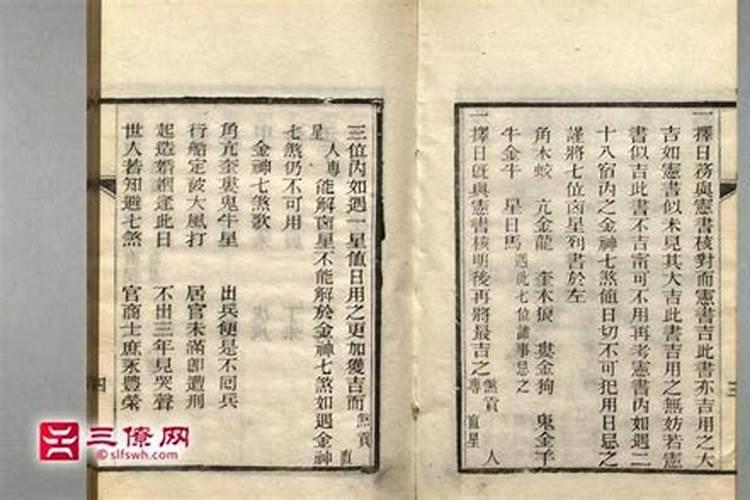 一擇日務與憲書核對而憲書吉此書亦吉用之大
吉如憲書似未見其大吉此書吉用之無妨若憲
書似吉此書不吉甯可不用再考憲書內如遇二
十八宿內之金神七煞值日切不可犯用日忌之
謹將七位凶星列書於左
角木蛟 亢金龍 奎木狼 婁金狗 鬼金羊
牛金牛 星日馬 遇此七位諸事忌之
一擇日旣與憲書核明後再將最吉之煞貢 專 直星 人
三
三位內如遇一星值日用之更加獲吉而煞貢 直
星 人專 能解凶星不能解於金神七煞如遇金神
七煞仍不可用
金神七煞歌
角亢奎婁鬼牛星 出兵便是不囘兵
行船定被大風打 居官未滿卽遭刑
起造婚姻逢此日 不出三年見哭聲
世人若知避七煞 官商士庶永豐榮
四
三僚网
©slfswh.com